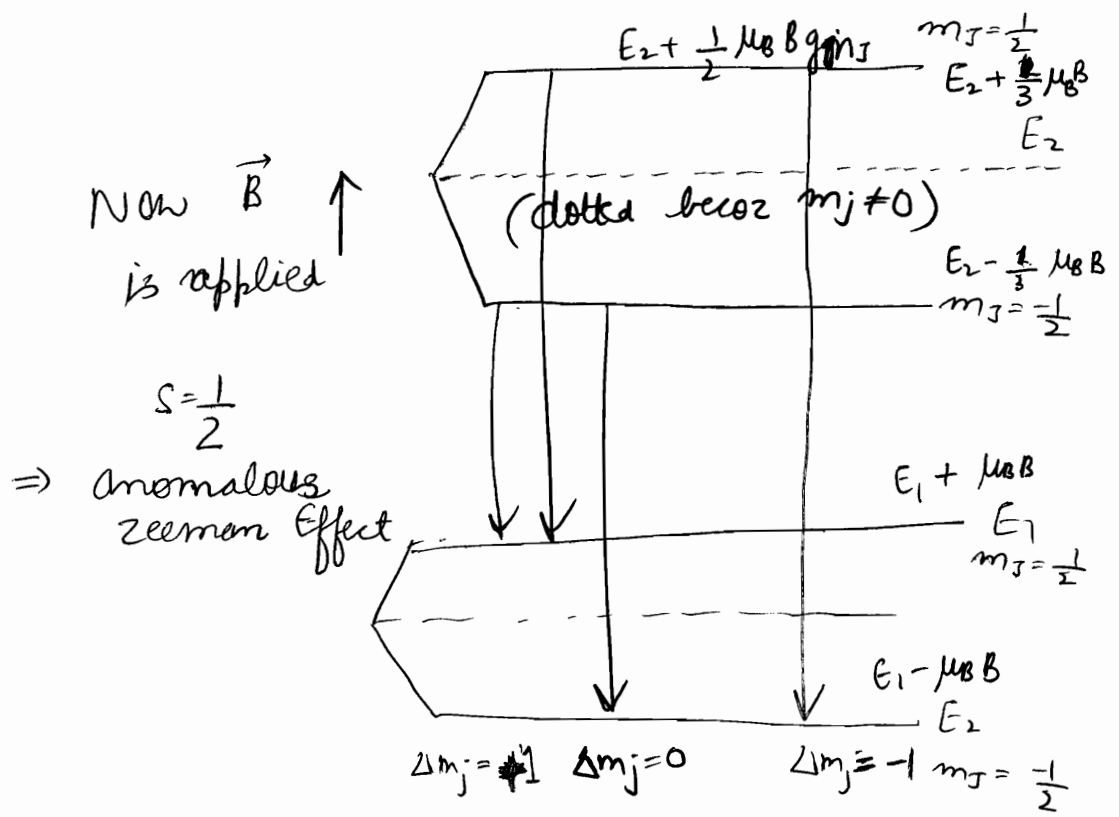 E₂ + 1/2 μ_B B g m_J
m_J = 1/2
E₂ + 1/3 μ_B B
E₂
Now B⃗ ↑
is applied
(dotted becoz m_j ≠ 0)
E₂ - 1/3 μ_B B
m_J = -1/2
S = 1/2
⇒ anomalous
zeeman Effect
E₁ + μ_B B
E₁
m_J = 1/2
E₁ - μ_B B
E₂
Δm_j = +1 Δm_j = 0 Δm_j = -1 m_J = -1/2